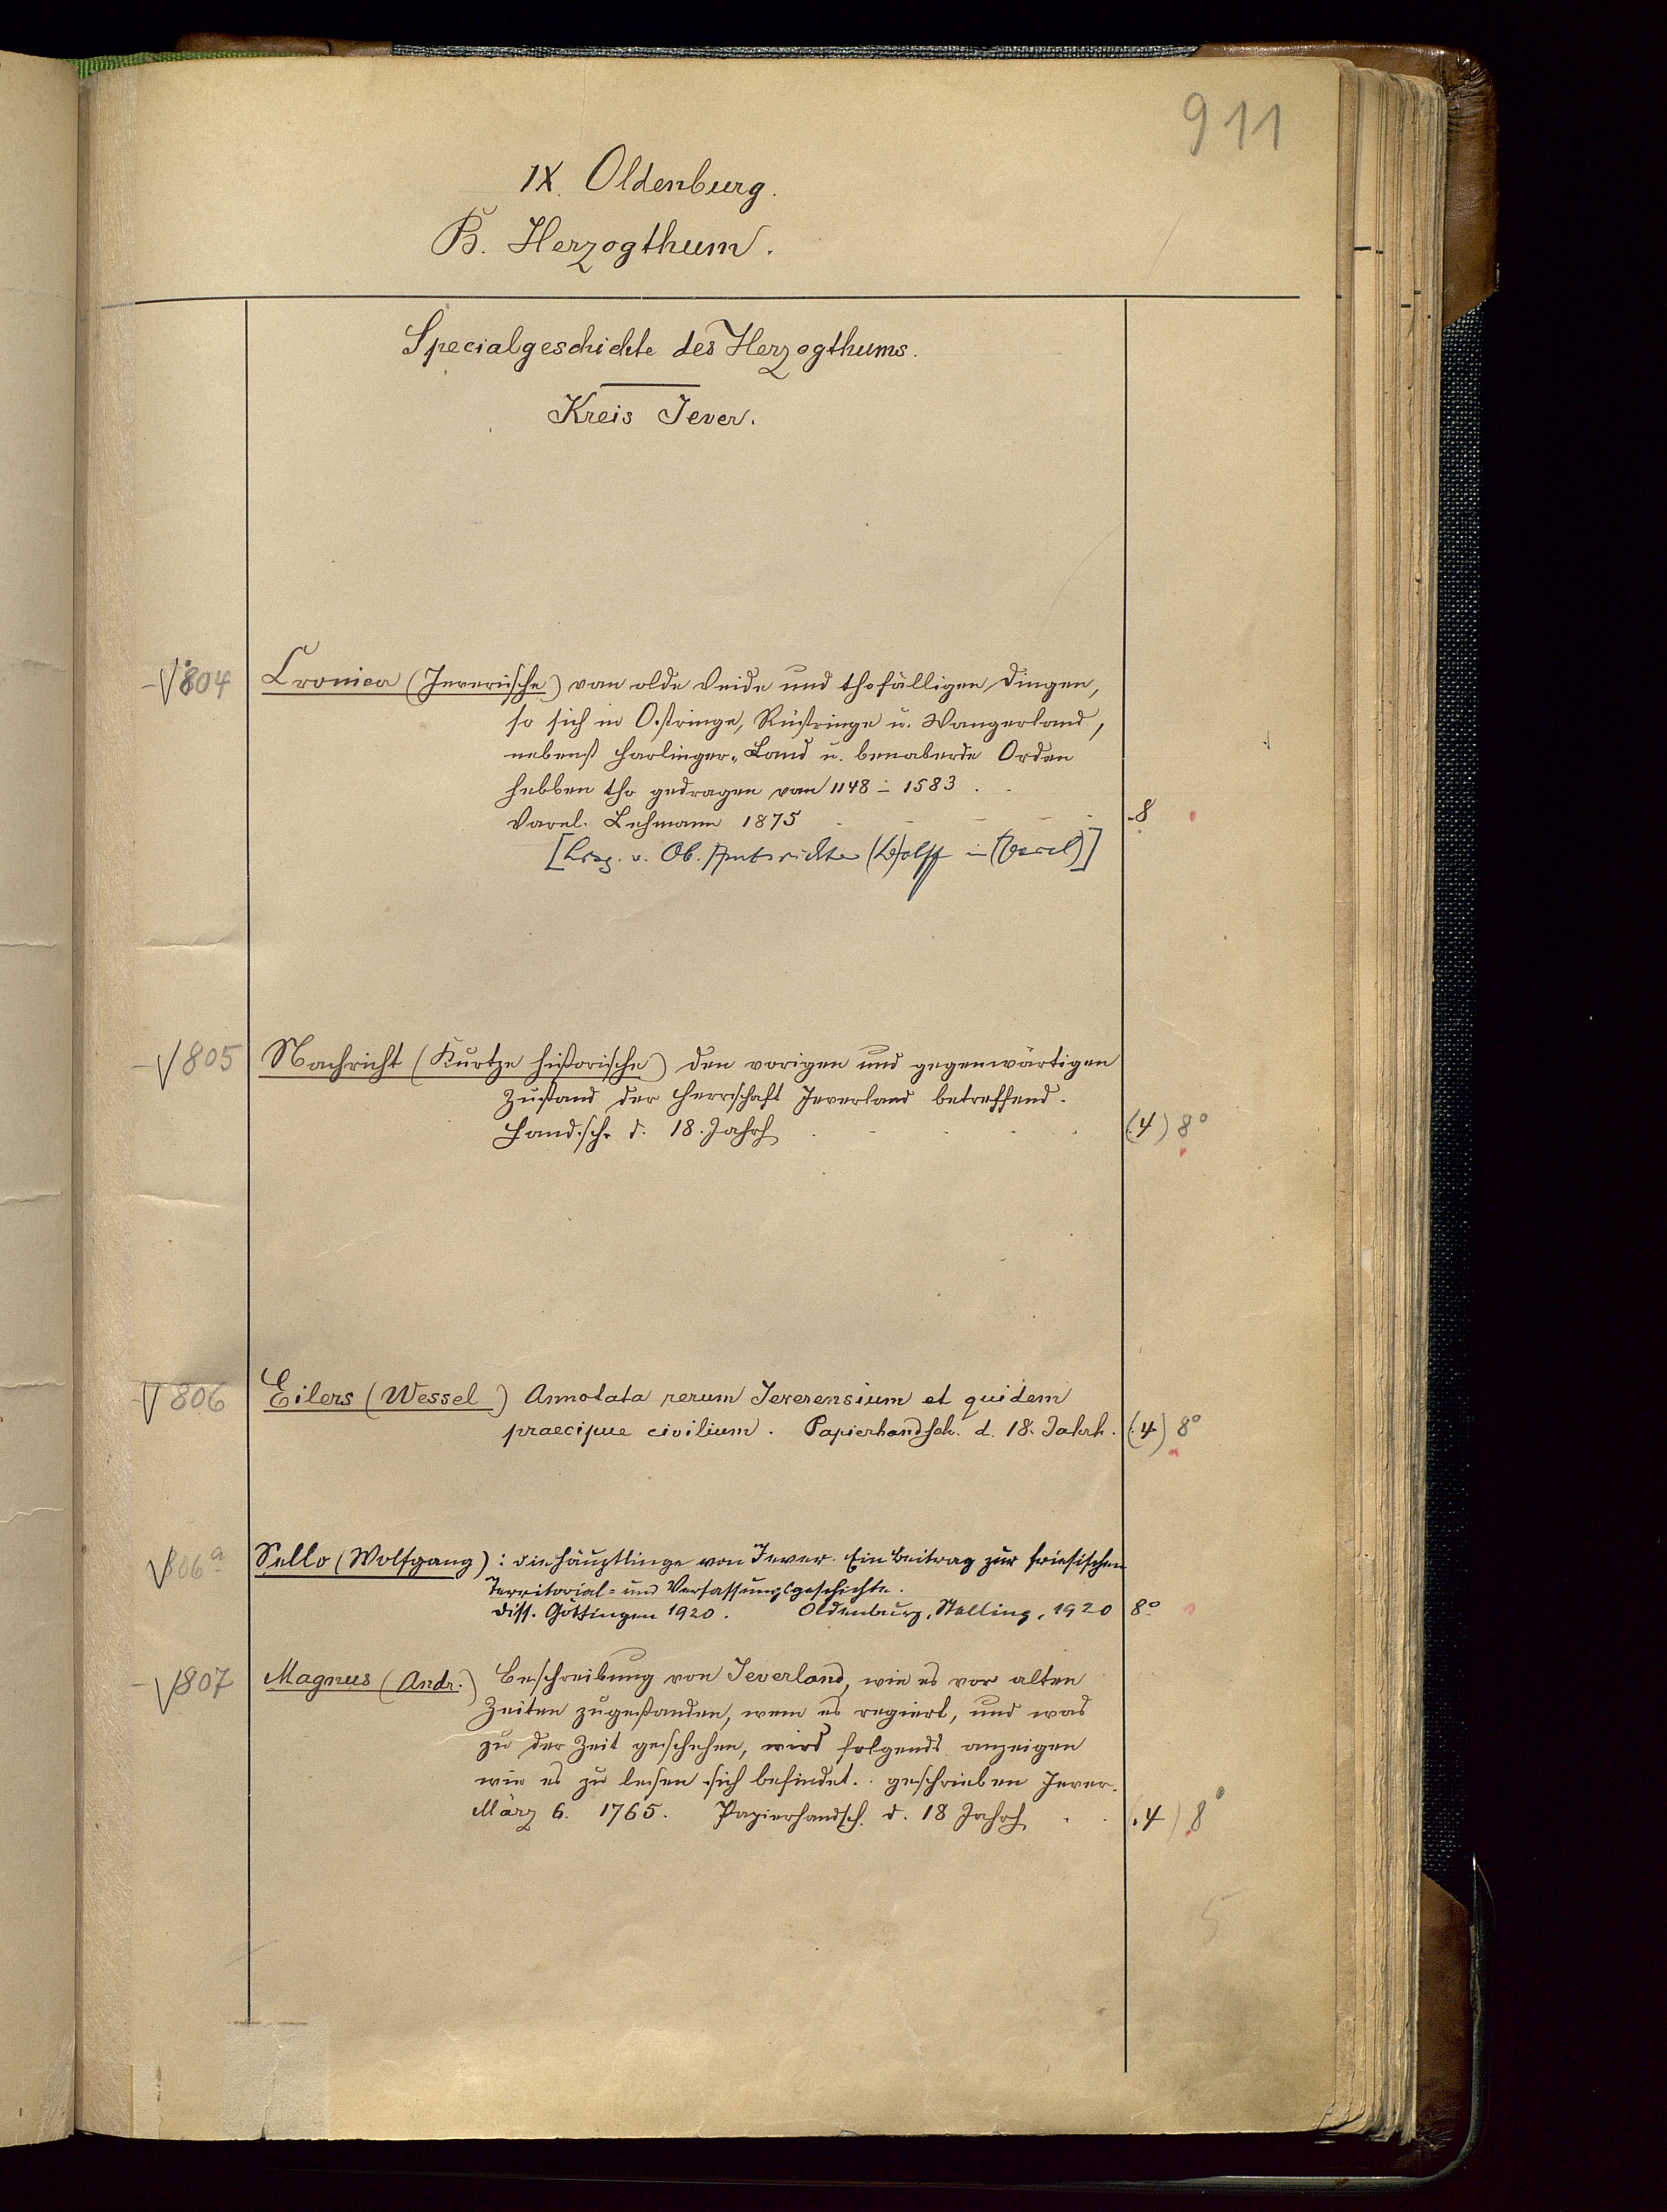 911
IX. Oldenburg.
B. Herzogthum.
Specialgeschichte des Herzogthums.
Kreis Jever.
804 Cronica (Jeverische) van olde Veide und thofälligen Dingen,
so sich in Ostringe, Rüstringe u. Wangerland,
nebenst Harlinger-Land u. benaberde Orden
hebben tho gedragen van 1148 - 1583.
Varel. Lehmann 1875 8
[Hrsg. v. Ob. Amtsrichter (W)olff in (Varel)]
805 Nachricht (Kurtze historische) den vorigen und gegenwärtigen
Zustand der Herrschaft Jeverland betreffend.
Handsch. d. 18. Jahrh (4) 8°
806 Eilers (Wessel) Annotata rerum Jeverensium et quidem
praecipue civilium. Papierhandsch. d. 18. Jahrh. (4) 8°
806a Sello (Wolfgang): Die Häuptlinge von Jever. Ein Beitrag zur friesischen
Territorial- und Verfassungsgeschichte.
Diss. Göttingen 1920. Oldenburg, Stalling, 1920 8°
807 Magnus (Andr.) Beschreibung von Jeverland, wie es vor alten
Zeiten zugestanden, wem es regiert, und was
zu der Zeit geschehen, wird folgends anzeigen
wie es zu lesen sich befindet. geschrieben Jever.
März 6. 1765. Papierhandsch. d. 18 Jahrh (4) 8°
5